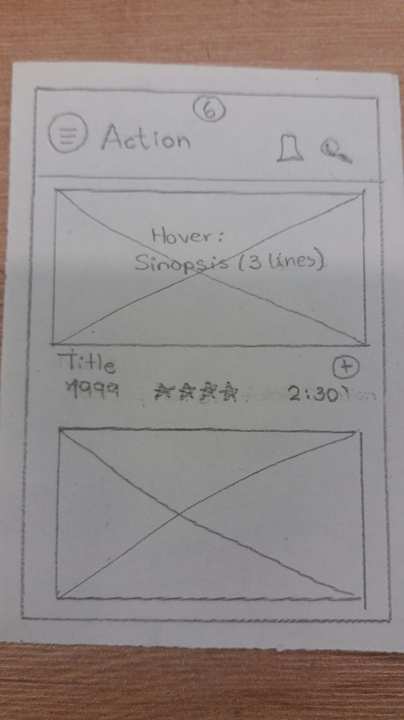 6
Action
Hover:
Sinopsis (3 lines)
Title
1999 2:30